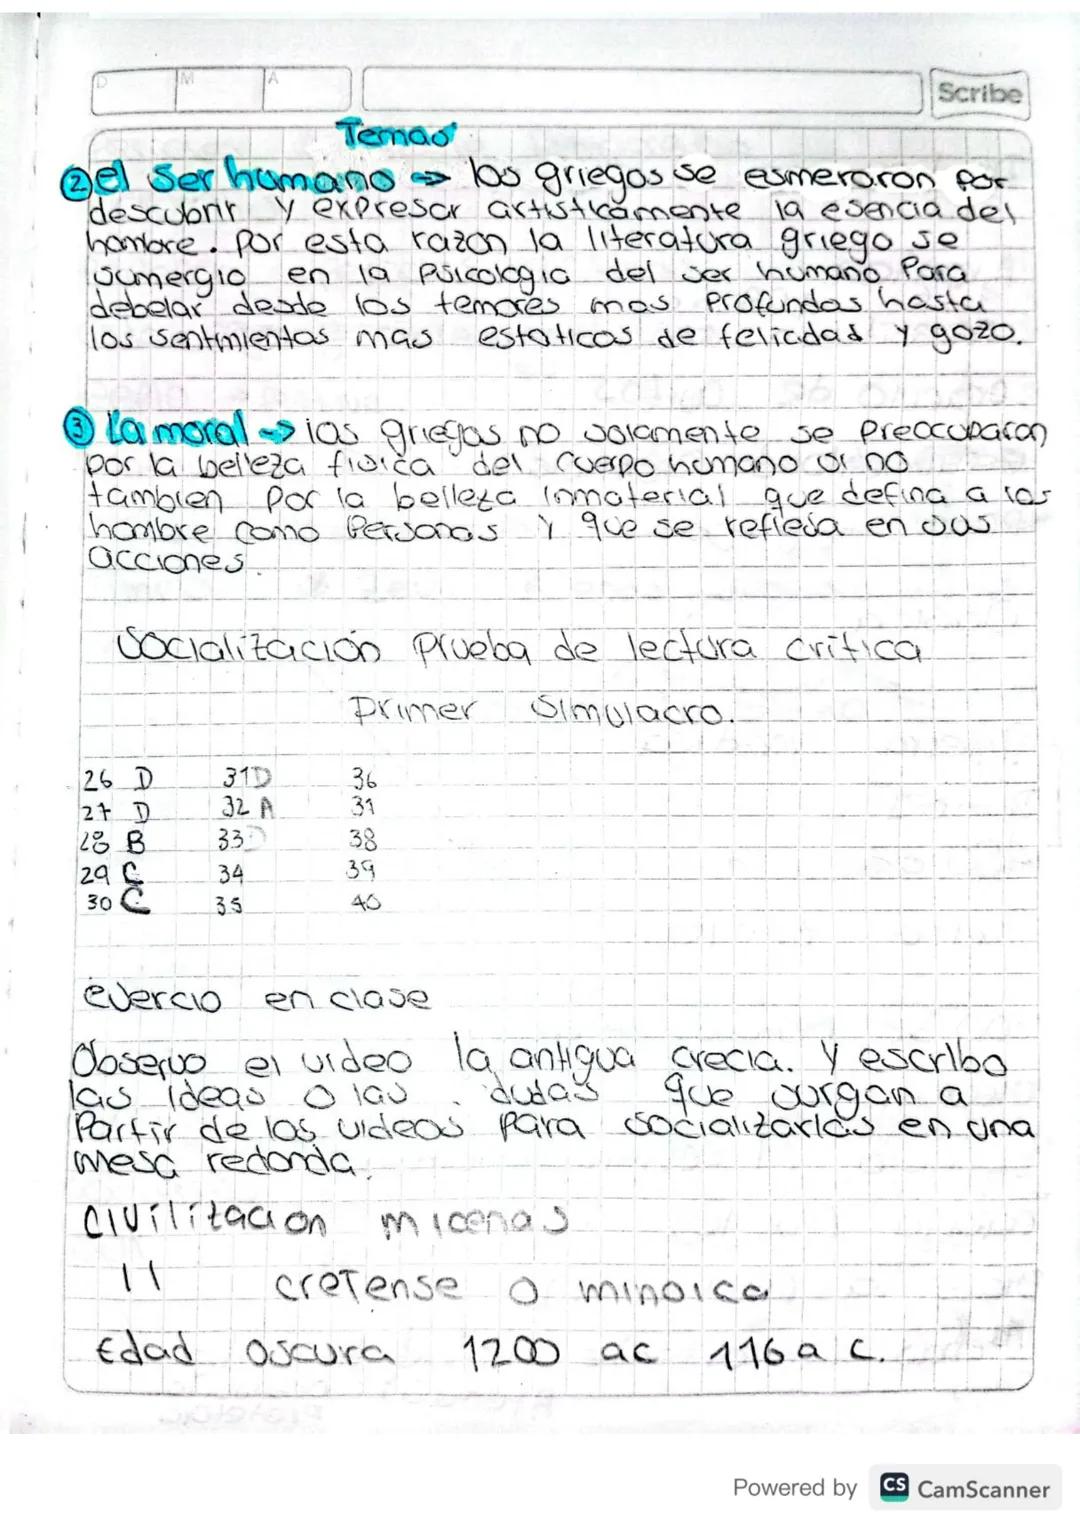 D M A Scribe
Temas
② el ser humano → los griegos se esmeraron por
descubrir y expresar artisticamente la esencia del
hombre. por esta razon la literatura griego se
sumergio en la Psicologia del ser humano Para
debelar desde los temores mas profundos hasta
los sentimientos mas estaticos de felicidad y gozo.
③ La moral → los griegos no solamente se preocuparon
por la belleza fisica del cuerpo humano si no
tambien por la belleza inmaterial que defina a los
hombre como Personas Y que se refleja en sus
acciones.
Socialización Prueba de lectura crítica
Primer Simulacro.
26 D 31 D 36
27 D 32 A 37
28 B 33 D 38
29 C 34 39
30 C 35 40
ejercio en clase
Observo el video la antigua Grecia. Y escribo
las ideas o las dudas que surgan a
Partir de los videos para socializarlas en una
mesa redonda.
Civilización micenas
11 creTense o minoica
Edad oscura 1200 ac 116 a c.
Powered by CS CamScanner